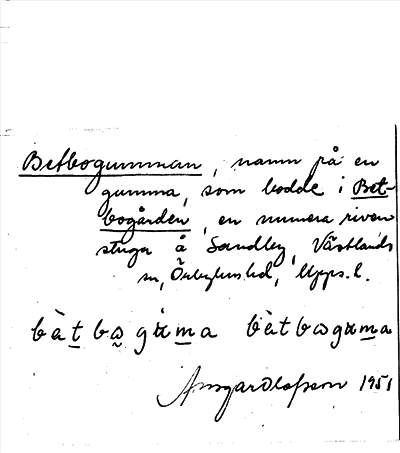 Betbogumman, namn på en
gumma, som bodde i Bet-
bogården, en numera riven
stuga å Sandby, Västlands
sn, Örbyhus hd, Upps. l.
bàt bɷ gʉ̀ma bètbɷgʉma
Ansgar Olofsson 1951